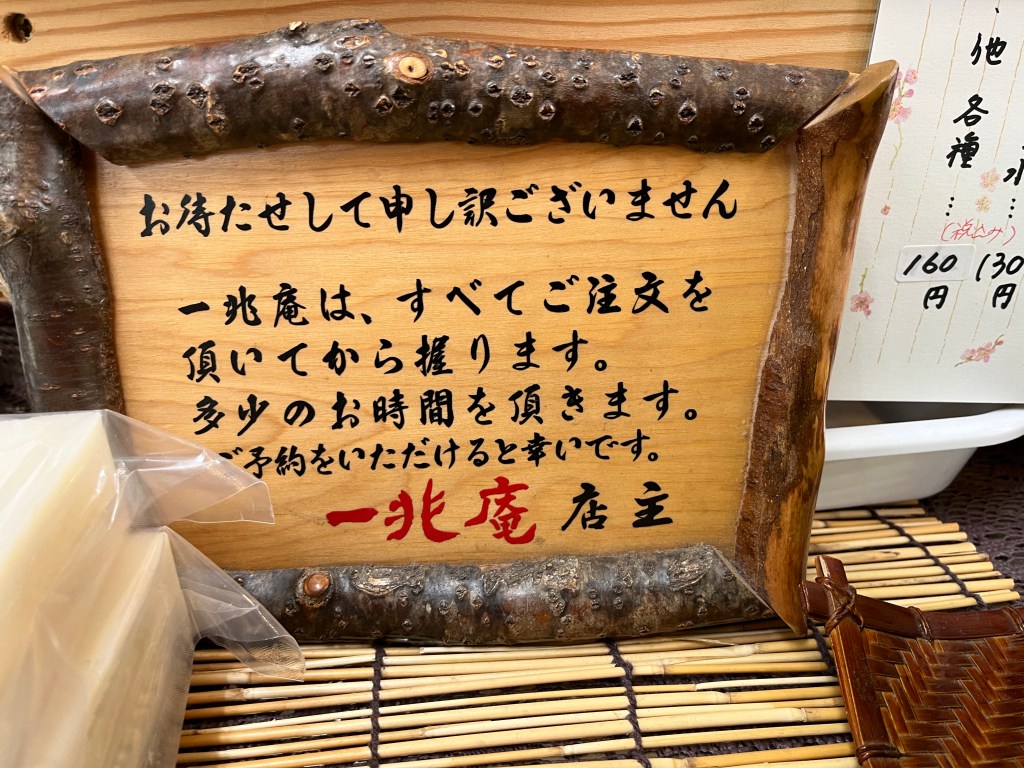 お待たせして申し訳ございません
一兆庵は、すべてご注文を
頂いてから握ります。
多少のお時間を頂きます。
ご予約をいただけると幸いです。
一兆庵 店主
他 各種…
(税込み)
160円
130円